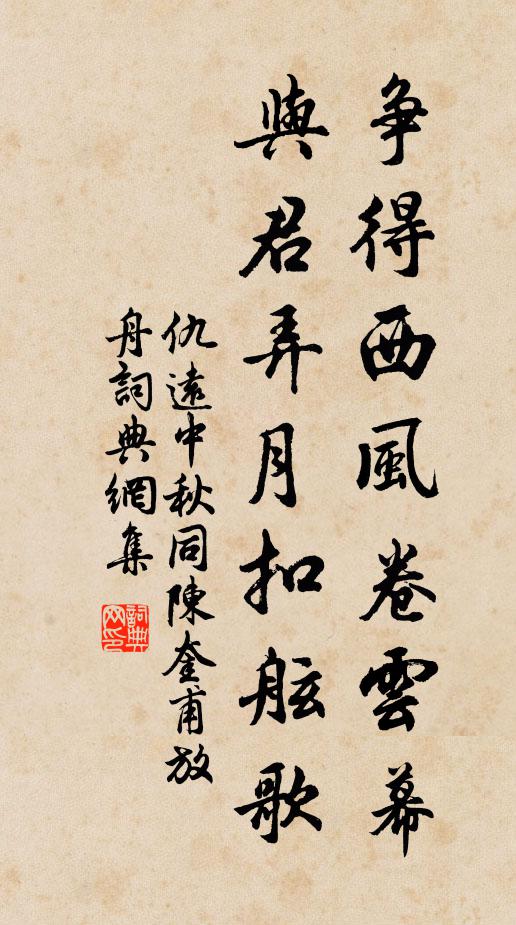 争得西風卷雲幕
與君弄月扣舷歌
仇遠中秋同陳奎甫放
舟詞典網集
詞典网印